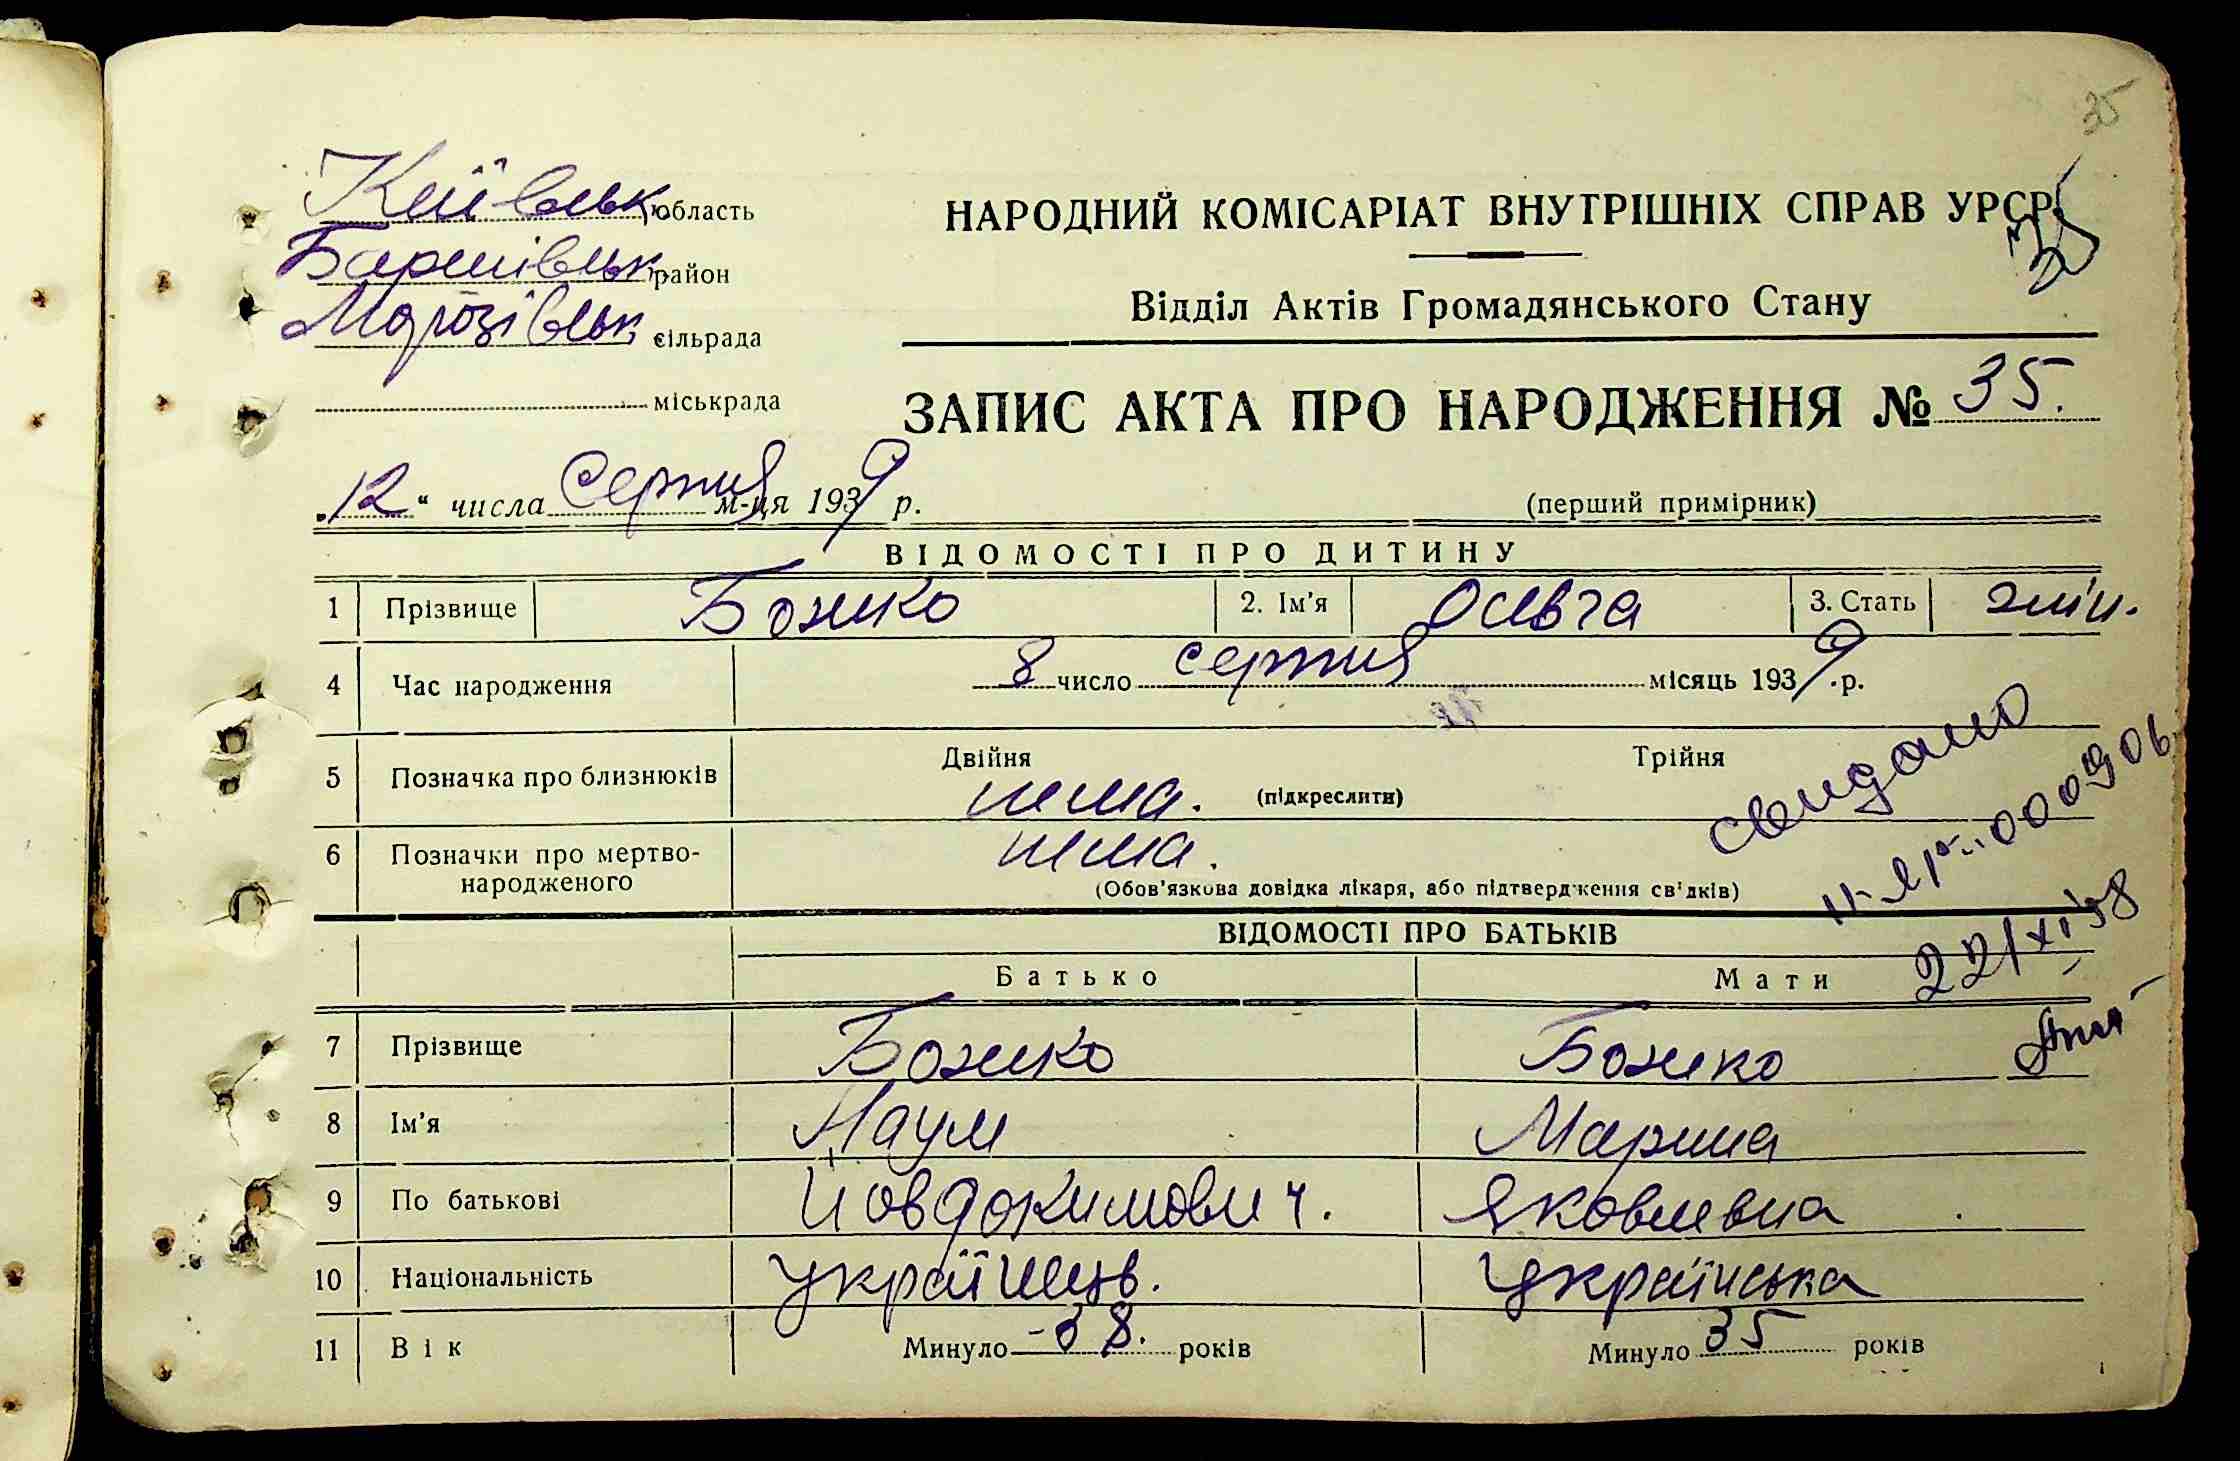 35
Київськ область
НАРОДНИЙ КОМІСАРІАТ ВНУТРІШНІХ СПРАВ УРСР
35
Баришівськ район
Відділ Актів Громадянського Стану
Морозівськ сільрада
міськрада
ЗАПИС АКТА ПРО НАРОДЖЕННЯ № 35.
„12“ числа Серпня м-ця 1939 р.
(перший примірник)
ВІДОМОСТІ ПРО ДИТИНУ
1 Прізвище Божко 2. Ім'я Ольга 3. Стать жін.
4 Час народження 8 число серпня місяць 1939 р.
5 Позначка про близнюків Двійня Трійня
нема. (підкреслити)
6 Позначки про мертво-
народженого
нема.
(Обов'язкова довідка лікаря, або підтвердження свідків)
22/XI 58
ВІДОМОСТІ ПРО БАТЬКІВ
Батько Мати
7 Прізвище Божко Божко
8 Ім'я Наум Марина
9 По батькові Йовдокимович. Яковлевна
10 Національність українець. українська
11 Вік Минуло 38. років Минуло 35 років